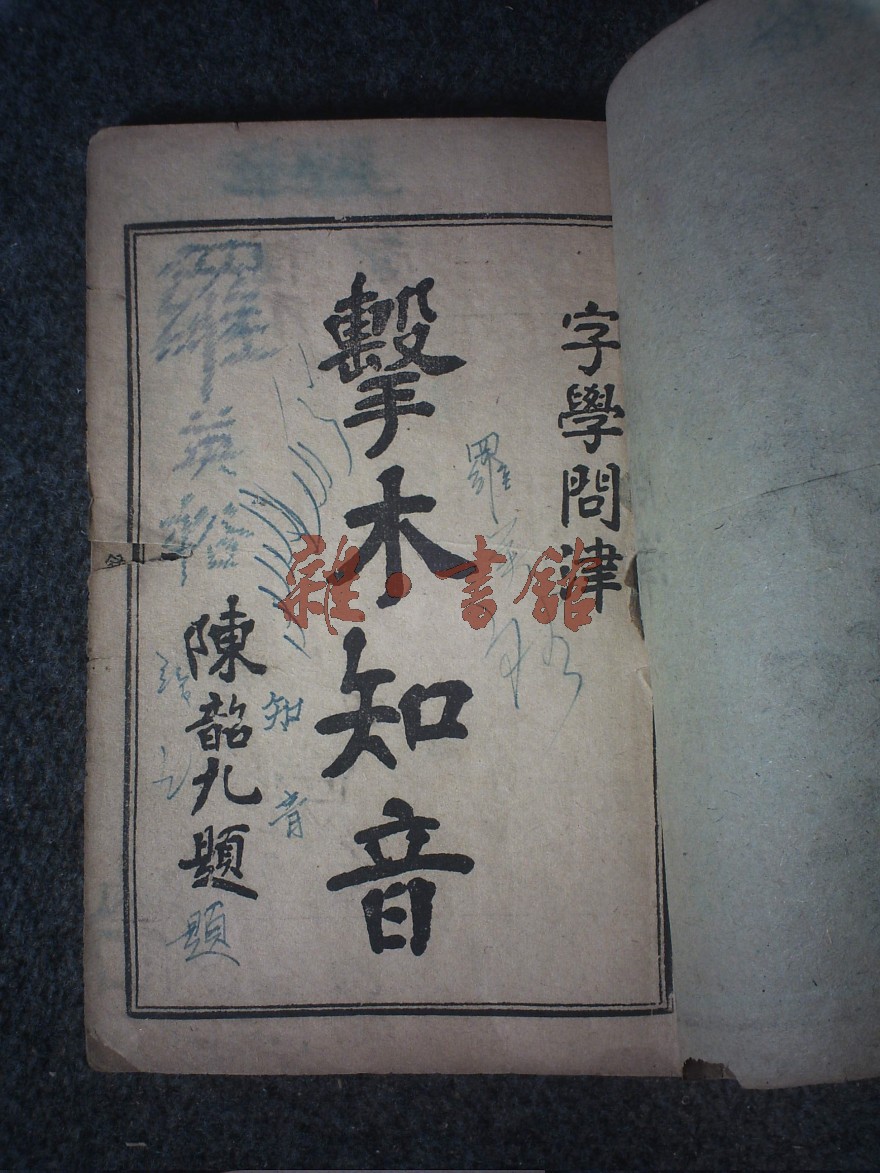 字學問津
擊木知音
陳韶九題
羅英
羅
知音
題
雜·書館